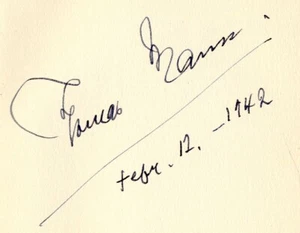 Thomas Mann.
Febr. 12. – 1942